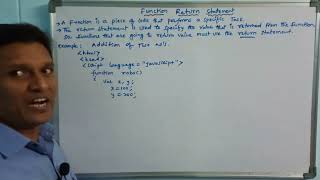 Function Return Statement
→ A Function is a piece of code that performs a specific Task.
→ The return statement is used to specify the value that is returned from the function.
So functions that are going to return value must use the return statement.
Example: Addition of Two no's.
<html>
<head>
<script language = "javascript">
function
{ var x, y;
x=100;
y=200;